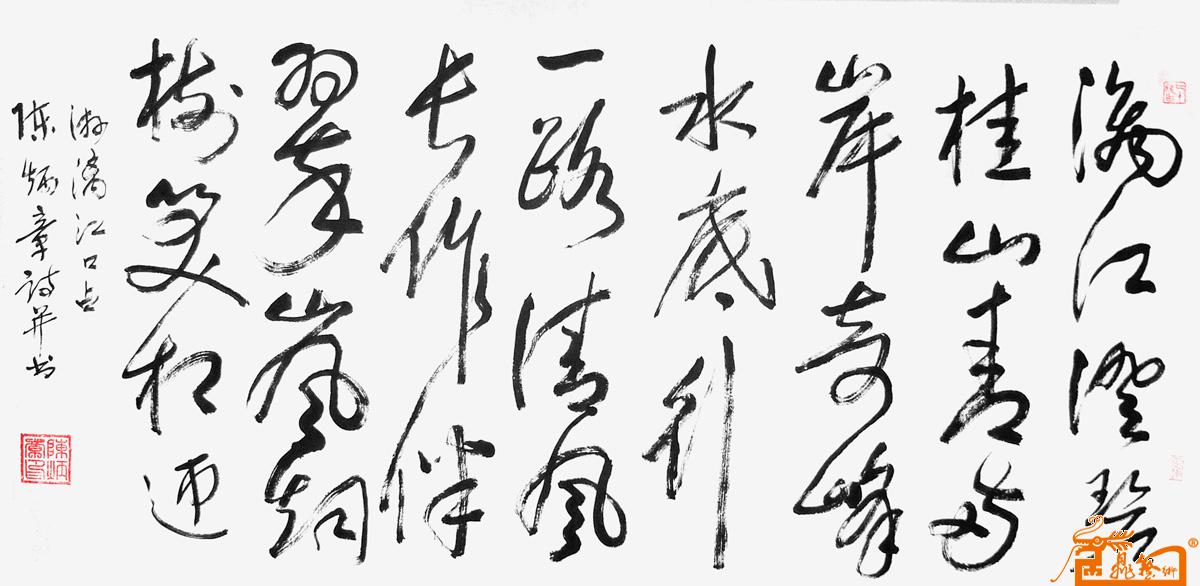 漓江澄碧
桂山青两
岸奇峰
水底行
一路清风
长作伴
翠岚烟
树笑相迎
游漓江口占
陈炳章诗并书